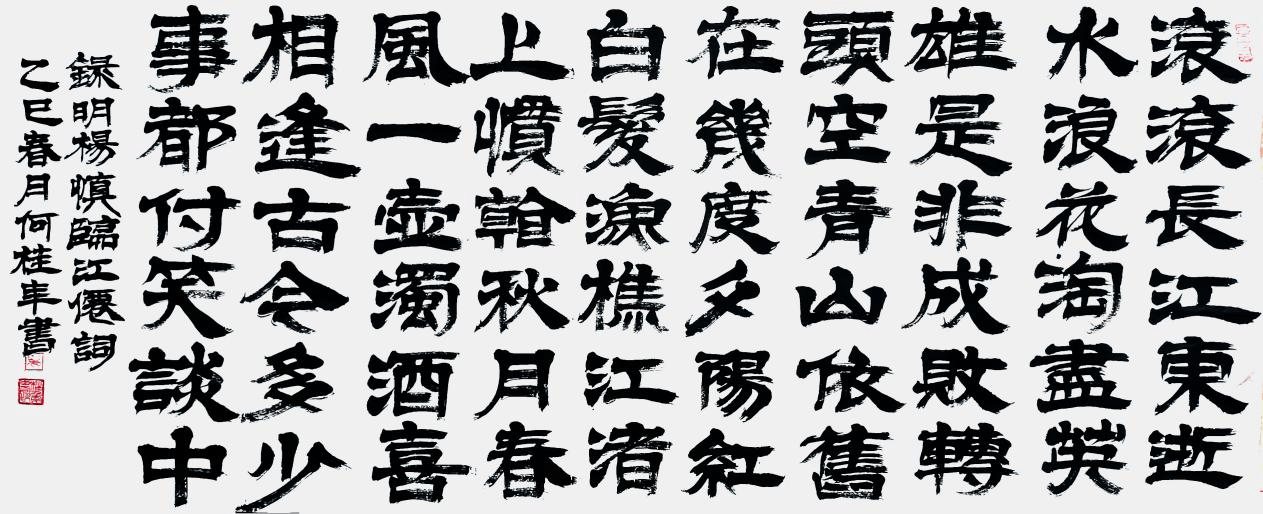 滾滾長江東逝
水浪花淘盡英
雄是非成敗轉
頭空青山依舊
在幾度夕陽紅
白髮漁樵江渚
上慣看秋月春
風一壺濁酒喜
相逢古今多少
事都付笑談中
錄明楊慎臨江僊詞
乙巳春月何桂年書